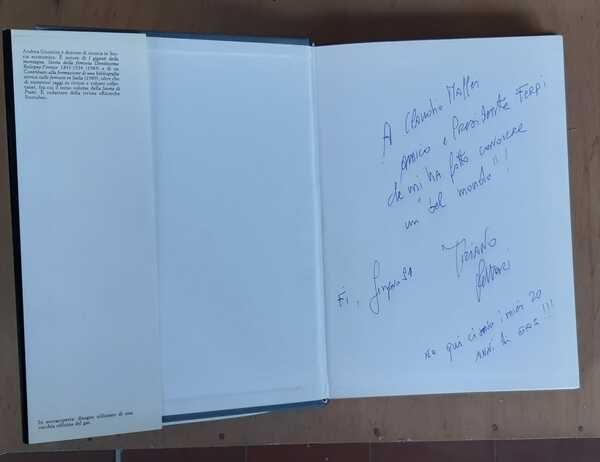 Andrea Giuntini è dottore di ricerca in Sto-
ria economica. È autore di I giganti della
montagna. Storia della ferrovia Direttissima
Bologna-Firenze 1845-1934 (1984) e di un
Contributo alla formazione di una bibliografia
storica sulle ferrovie in Italia (1989), oltre che
di numerosi saggi in riviste e volumi collet-
tanei, fra cui il terzo volume della Storia di
Prato. È redattore della rivista «Ricerche
Storiche».
In sovraccoperta: disegno ottocentesco di una
vecchia officina del gas.
A Claudio Maffei
amico e Presidente FERPI
che mi ha fatto conoscere
un "bel mondo"!!
Fi,
TIZIANO
ma qui ci sono i miei 20
anni in